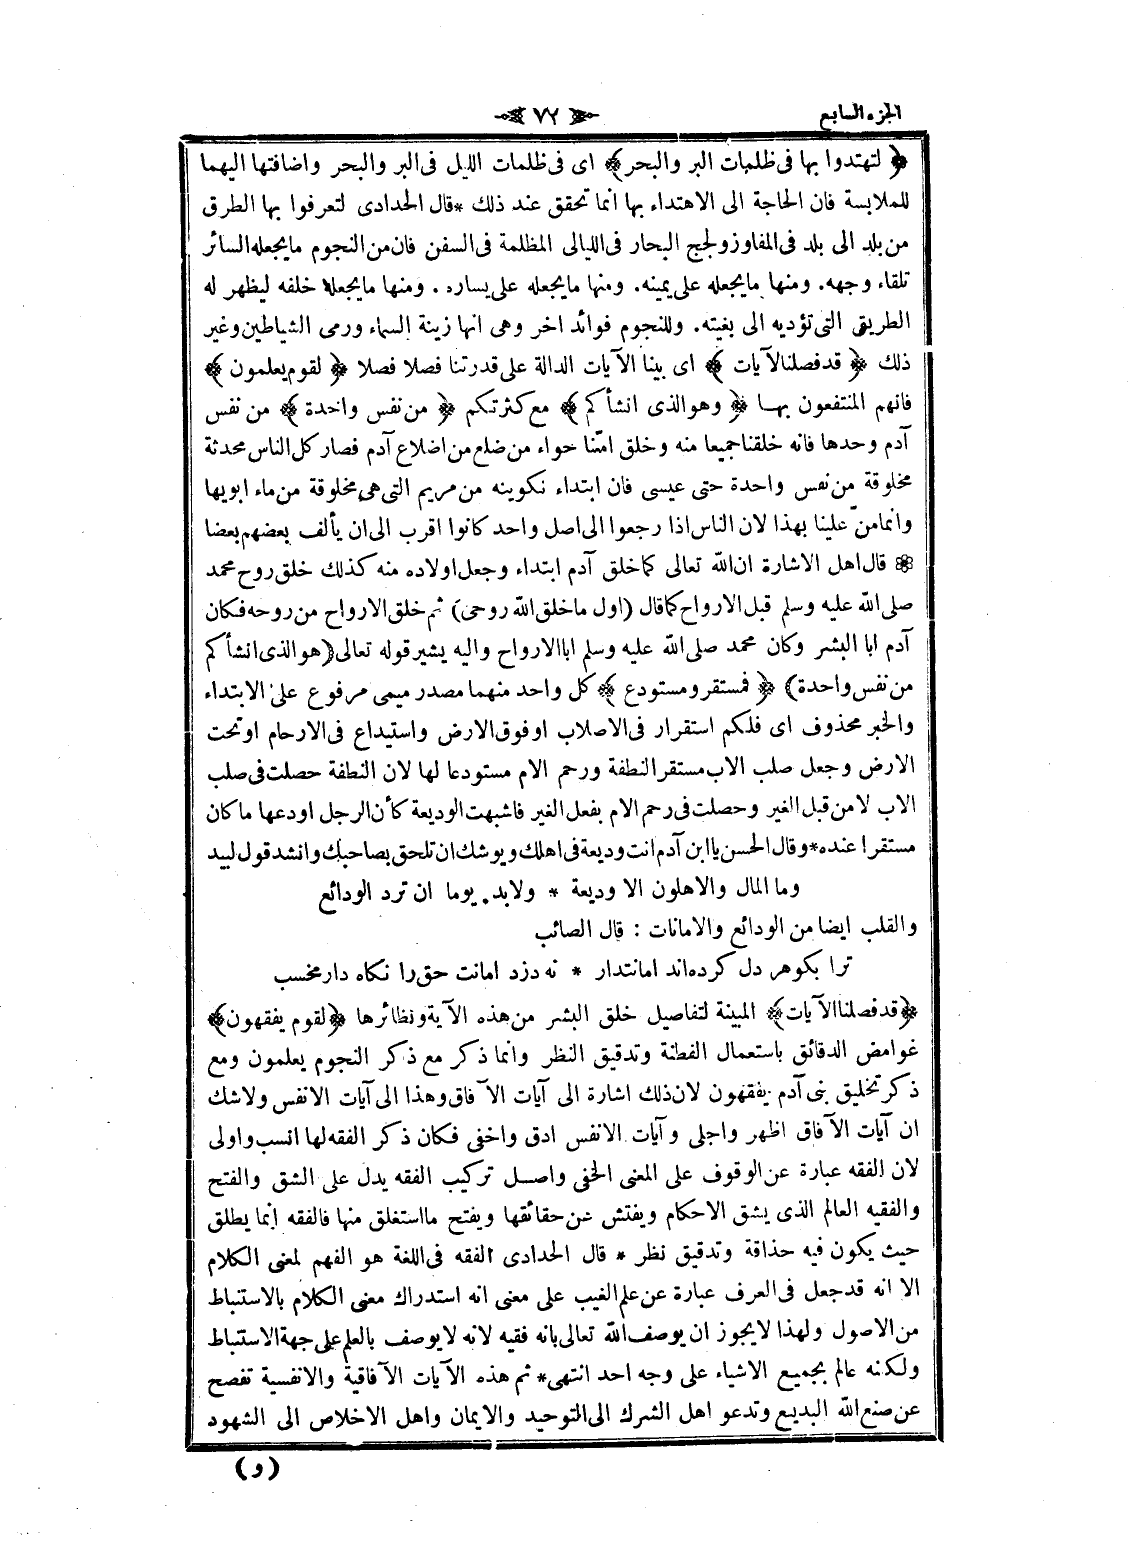 الجزء السابع
٧٢
﴿ لتهتدوا بها فى ظلمات البر والبحر﴾ اى فى ظلمات الليل فى البر والبحر واضافتها اليهما
للملابسة فان الحاجة الى الاهتداء بها انما تحقق عند ذلك *قال الحدادى لتعرفوا بها الطرق
من بلد الى بلد فى المفاوز ولجج البحار فى الليالى المظلمة فى السفن فان من النجوم مايجعله السائر
تلقاء وجهه. ومنها مايجعله على يمينه. ومنها مايجعله على يساره . ومنها مايجعله خلفه ليظهر له
الطريق التى تؤديه الى بغيته. وللنجوم فوائد اخر وهى انها زينة السماء ورمى الشياطين وغير
ذلك ﴿ قدفصلنا الآيات ﴾ اى بينا الآيات الدالة على قدرتنا فصلا فصلا ﴿ لقوم يعلمون ﴾
فانهم المنتفعون بها ﴿ وهوالذى انشأكم ﴾ مع كثرتكم ﴿ من نفس واحدة ﴾ من نفس
آدم وحدها فانه خلقنا جميعا منه وخلق امّنا حواء من ضلع من اضلاع آدم فصار كل الناس محدثة
مخلوقة من نفس واحدة حتى عيسى فان ابتداء تكوينه من مريم التى هى مخلوقة من ماء ابويها
وانما منّ علينا بهذا لان الناس اذا رجعوا الى اصل واحد كانوا اقرب الى ان يألف بعضهم بعضا
❁ قال اهل الاشارة ان الله تعالى كما خلق آدم ابتداء وجعل اولاده منه كذلك خلق روح محمد
صلى الله عليه وسلم قبل الارواح كما قال (اول ماخلق الله روحى) ثم خلق الارواح من روحه فكان
آدم ابا البشر وكان محمد صلى الله عليه وسلم ابا الارواح واليه يشير قوله تعالى (هو الذى انشأكم
من نفس واحدة) ﴿ فمستقر ومستودع ﴾ كل واحد منهما مصدر ميمى مرفوع على الابتداء
والخبر محذوف اى فلكم استقرار فى الاصلاب اوفوق الارض واستيداع فى الارحام اوتحت
الارض وجعل صلب الاب مستقر النطفة ورحم الام مستودعا لها لان النطفة حصلت فى صلب
الاب لا من قبل الغير وحصلت فى رحم الام بفعل الغير فاشبهت الوديعة كأن الرجل اودعها ماكان
مستقرا عنده*وقال الحسن يا ابن آدم انت وديعة فى اهلك ويوشك ان تلحق بصاحبك وانشد قول لبيد
وما المال والاهلون الا وديعة * ولابد يوما ان ترد الودائع
والقلب ايضا من الودائع والامانات : قال الصائب
ترا بكوهر دل كرده‌اند امانتدار * نه دزد امانت حق را نكاه دار مخسب
﴿قدفصلنا الآيات﴾ المبينة لتفاصيل خلق البشر من هذه الآية ونظائرها ﴿لقوم يفقهون﴾
غوامض الدقائق باستعمال الفطنة وتدقيق النظر وانما ذكر مع ذكر النجوم يعلمون ومع
ذكر تخليق بنى آدم يفقهون لان ذلك اشارة الى آيات الآفاق وهذا الى آيات الانفس ولاشك
ان آيات الآفاق اظهر واجلى وآيات الانفس ادق واخفى فكان ذكر الفقه لها انسب واولى
لان الفقه عبارة عن الوقوف على المعنى الخفى واصل تركيب الفقه يدل على الشق والفتح
والفقيه العالم الذى يشق الاحكام ويفتش عن حقائقها ويفتح ما استغلق منها فالفقه انما يطلق
حيث يكون فيه حذاقة وتدقيق نظر * قال الحدادى الفقه فى اللغة هو الفهم لمعنى الكلام
الا انه قدجعل فى العرف عبارة عن علم الغيب على معنى انه استدراك معنى الكلام بالاستنباط
من الاصول ولهذا لايجوز ان يوصف الله تعالى بانه فقيه لانه لايوصف بالعلم على جهة الاستنباط
ولكنه عالم بجميع الاشياء على وجه احد انتهى* ثم هذه الآيات الآفاقية والانفسية تفصح
عن صنع الله البديع وتدعو اهل الشرك الى التوحيد والايمان واهل الاخلاص الى الشهود
(و)